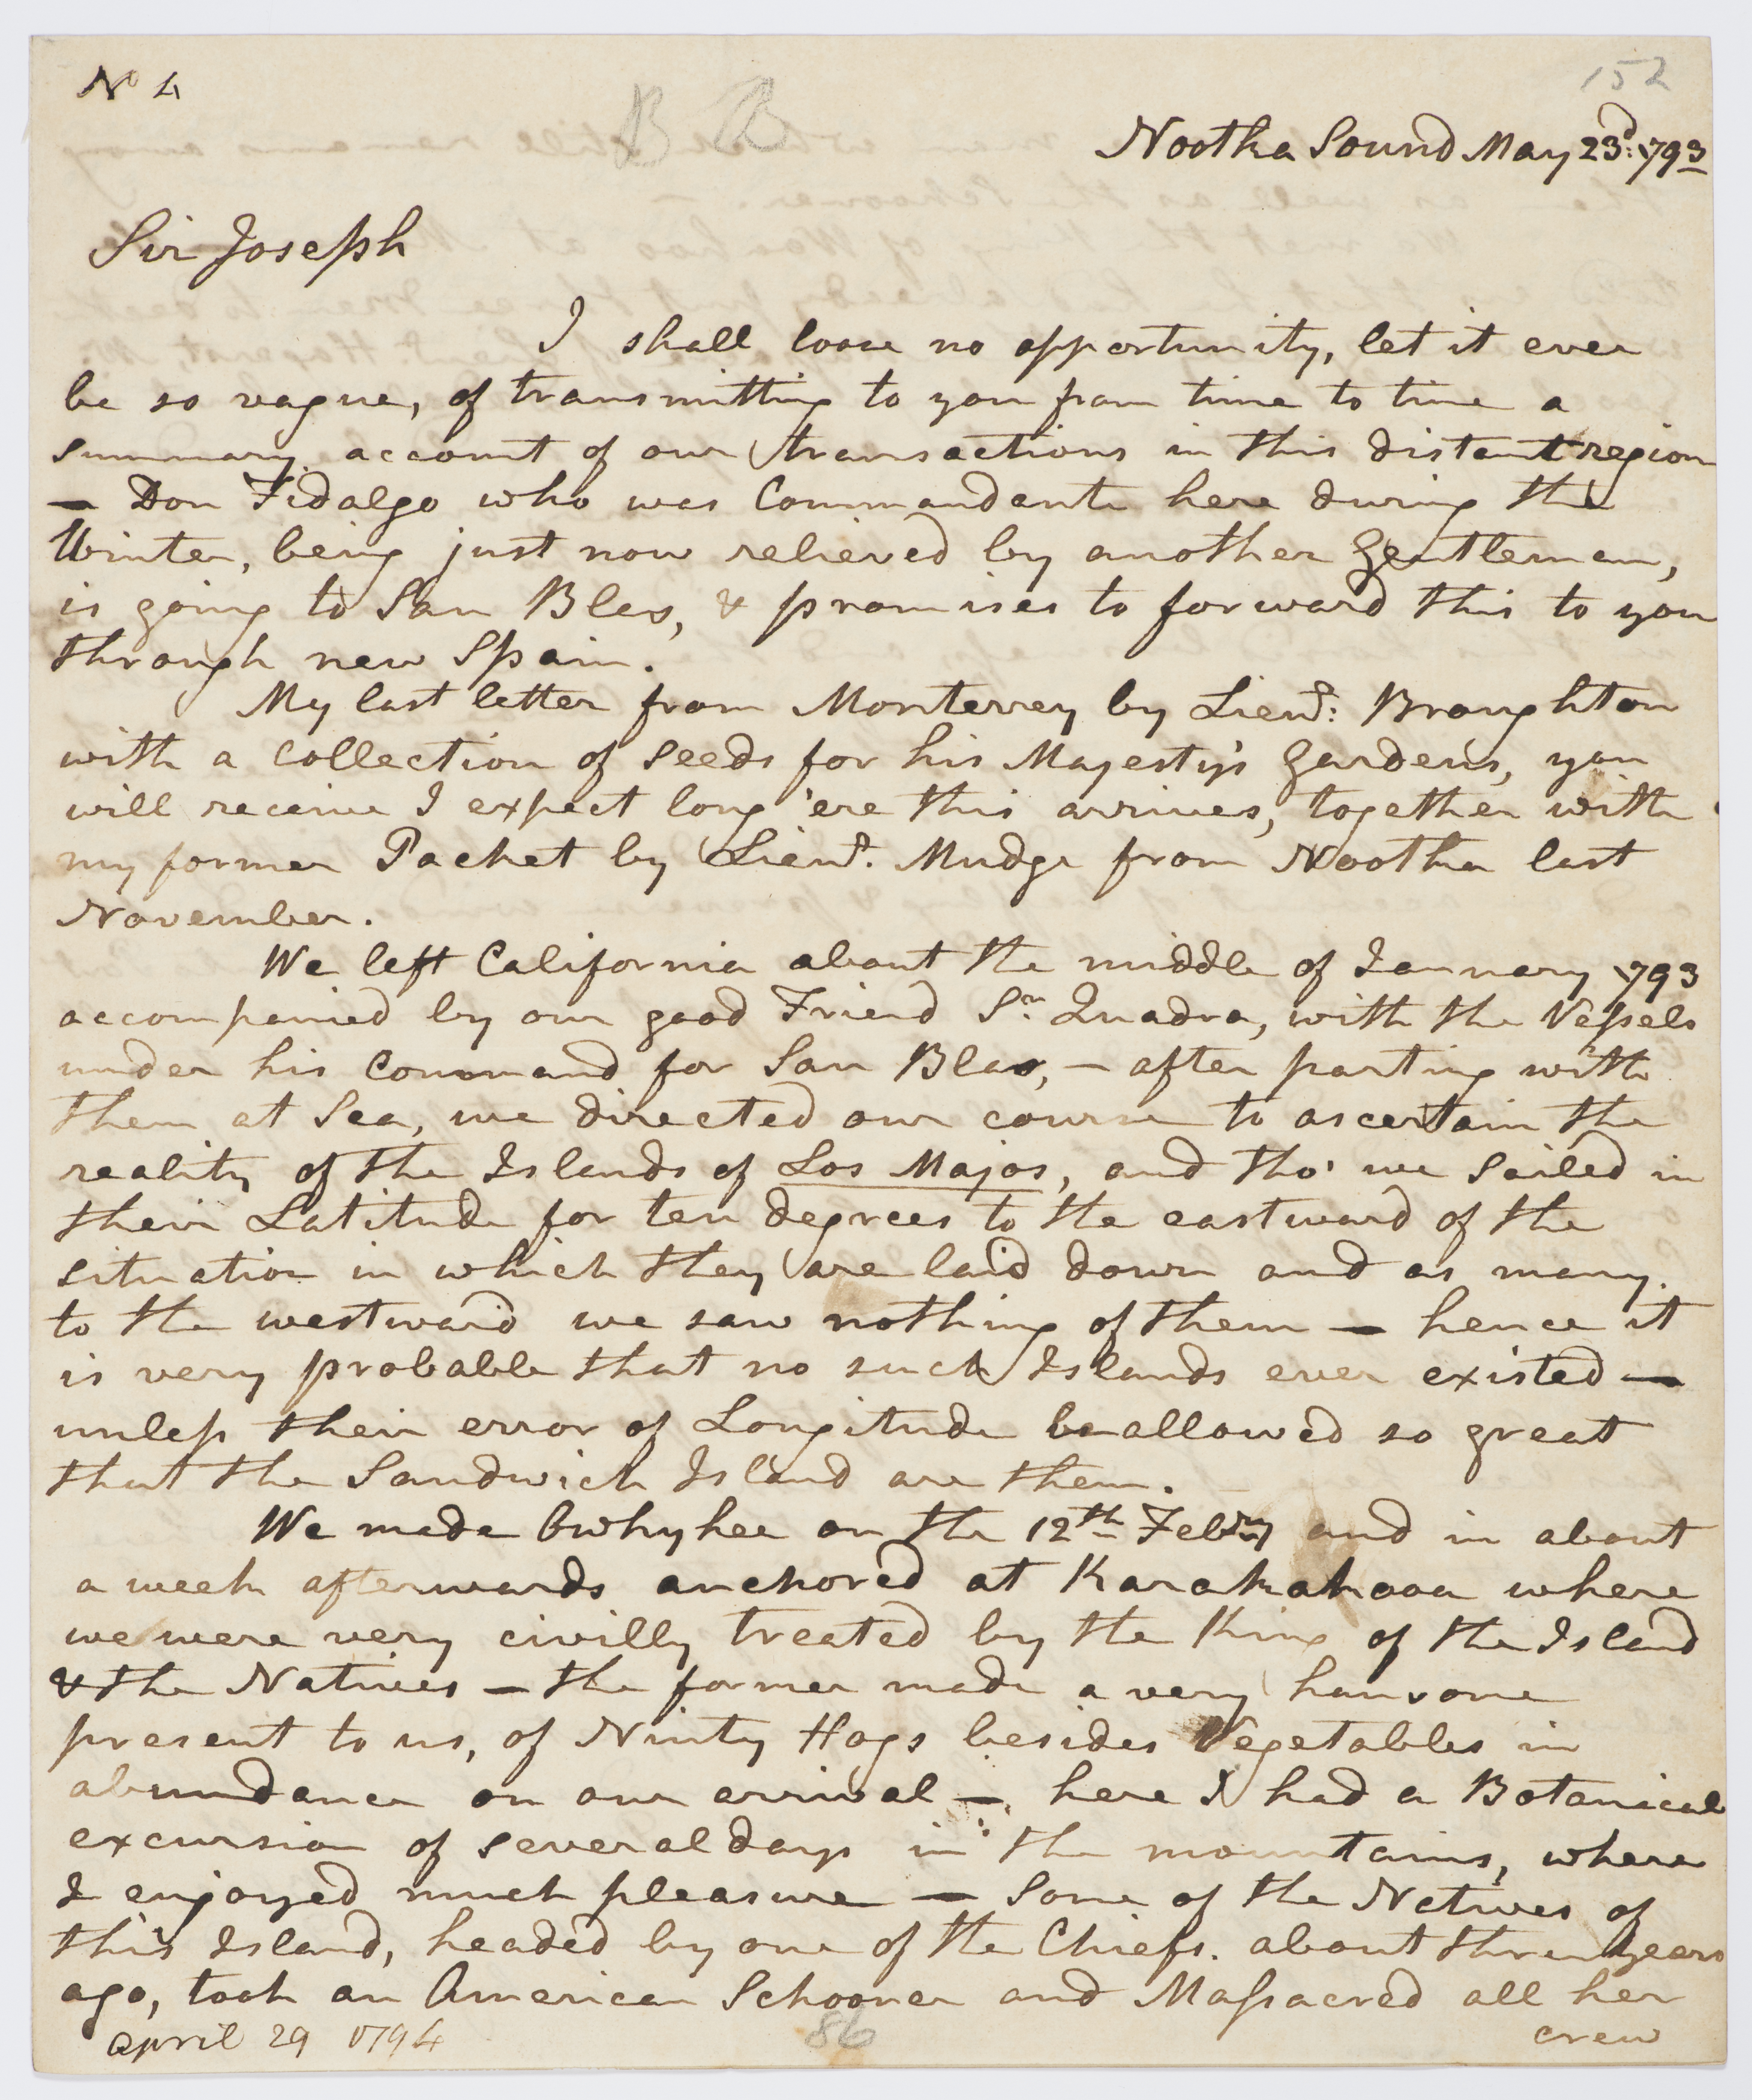 No 4
B B
152
Nootka Sound May 23d: 1793
Sir Joseph
I shall loose no opportunity, let it ever
be so vague, of transmitting to you from time to time a
summary account of our transactions in this distant region
— Don Fidalgo who was Commandante here during the
Winter, being just now relieved by another Gentleman,
is going to San Blas, & promises to forward this to you
through new Spain.
My last letter from Monterrey by Lieut: Broughton
with a collection of seeds for his Majesty's Gardens, you
will receive I expect long 'ere this arrives, together with
my former Packet by Lieut. Mudge from Nootka last
November.
We left California about the middle of January 1793
accompanied by our good Friend Sr. Quadra, with the Vessels
under his Command for San Blas, — after parting with
them at Sea, we directed our course to ascertain the
reality of the Islands of Los Majos, and tho' we sailed in
their Latitude for ten degrees to the eastward of the
situation in which they are laid down and as many
to the westward we saw nothing of them — hence it
is very probable that no such Islands ever existed —
unless their error of Longitude be allowed so great
that the Sandwich Island are them.
We made Owhyhee on the 12th Febry and in about
a week afterwards anchored at Karakakooa where
we were very civilly treated by the King of the Island
& the Natives — the former made a very hansome
present to us, of Ninty Hogs besides Vegetables in
abundance on our arrival —. here I had a Botanical
excursion of several days in the mountains, where
I enjoyed much pleasure — Some of the Natives of
this Island, headed by one of the Chiefs. about three years
ago, took an American Schooner and Massacred all her
crew
april 29 1794
86